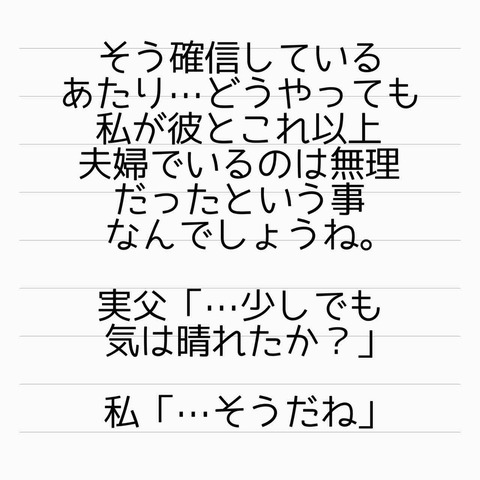 そう確信している
あたり…どうやっても
私が彼とこれ以上
夫婦でいるのは無理
だったという事
なんでしょうね。
実父「…少しでも
気は晴れたか？」
私「…そうだね」